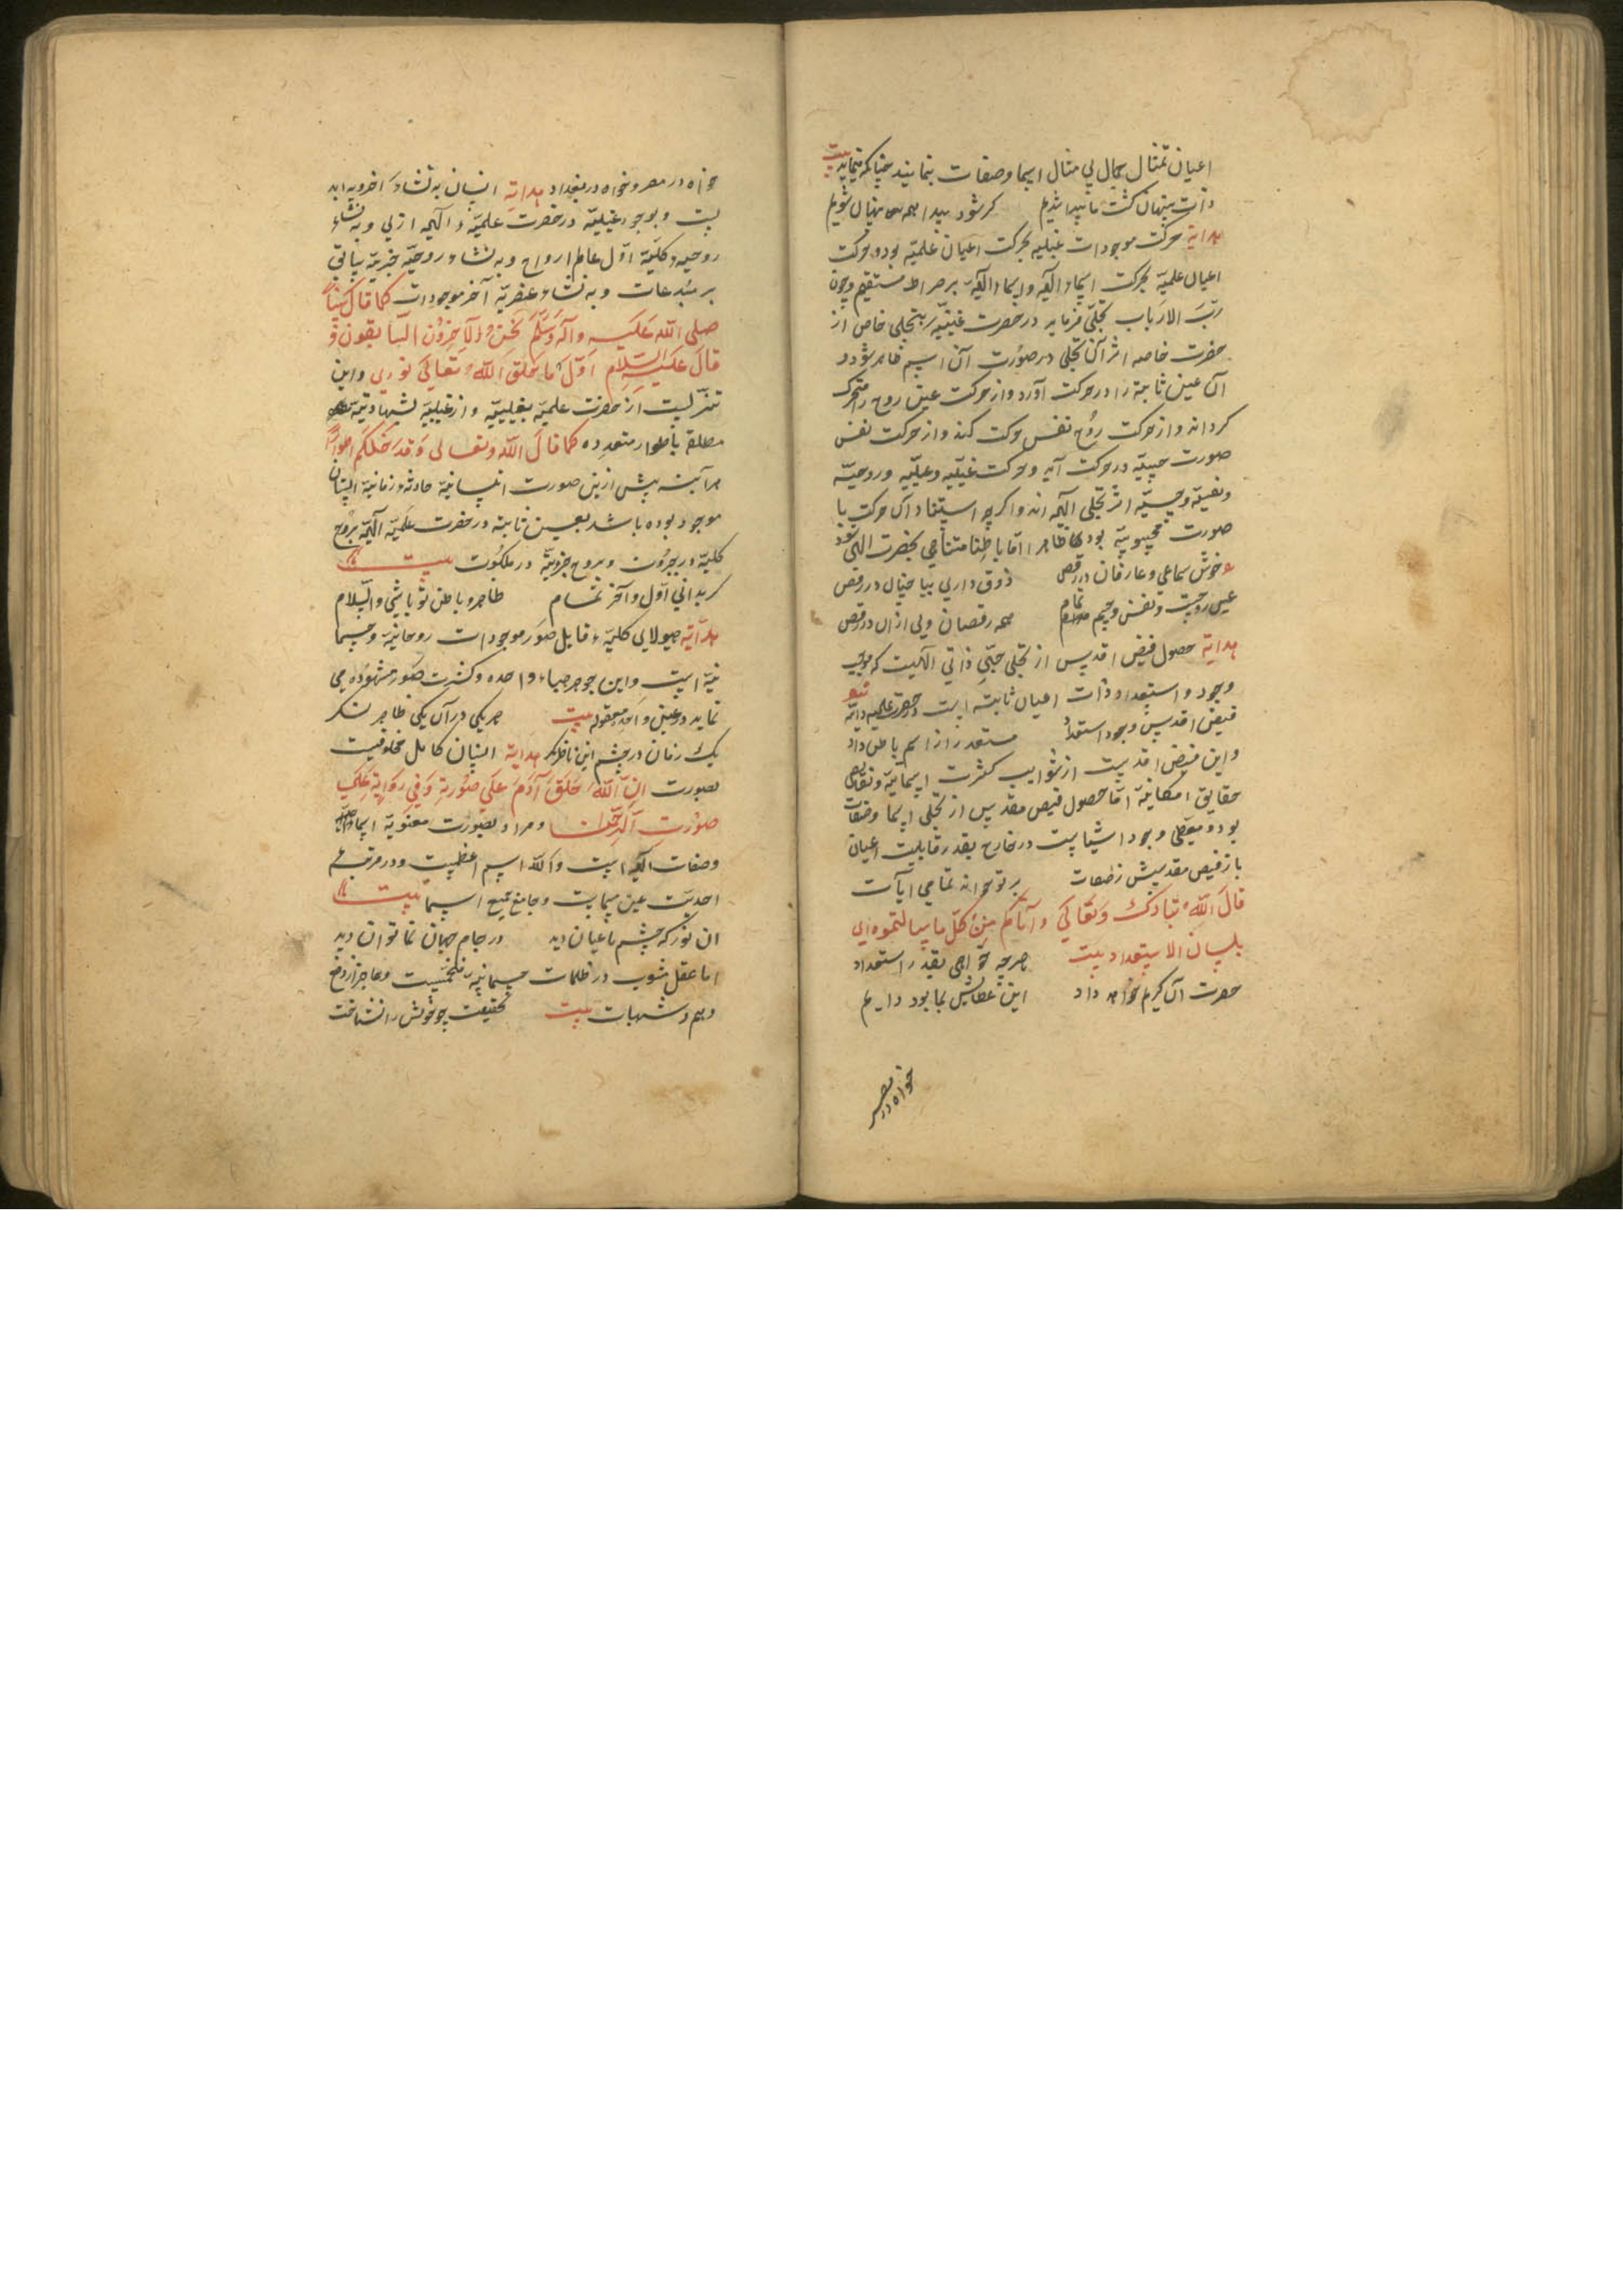 اعیان تمثال جمال بی مثال اسما وصفات بنمایند چنانکه بنماید بیت
ذات پنهان گشت ما پیدا شدیم کر شود پیدا همه پنهان شویم
هدایة حرکت موجودات غیبیه بحرکت اعیان علمیّه بود وحرکت
اعیان علمیّه بحرکت اسماء الٓهیّه واسماء الٓهیّه بر صراط مستقیم وچون
ربّ الارباب تجلّی فرماید در حضرت غیبیّه بتجلی خاص از
حضرت خاصه اثر آن تجلی در صورت آن اسم ظاهر شود و
آن عین ثابته را در حرکت آورد واز حرکت عین روح را متحرک
کرداند واز حرکت روح نفس حرکت کند واز حرکت نفس
صورت حسیّه در حرکت آید وحرکت غیبیّه وعلمیّه وروحیّه
ونفسیّه وحسیّه اثر تجلی الٓهیّه اند واکرچه استناد آن حرکت با
صورت محسوسیّه بود ظاهرا امّا باطنا متناهی بحضرت الٓهی شود
خوش سماعی وعارفان در رقص ذوق داری بیا چنان در رقص
عین وروحست ونفس وجسم تمام همه رقصان ولی ازان در رقص
هدایة حصول فیض اقدس از تجلی حبّی ذاتی الٓهیست که موجب
وجود واستعداد ذات اعیان ثابته است در حضرت علمیه ذاتیّه
فیض اقدس وجود استعداد مستعد را از اسم باطن داد
واین فیض اقدست از شوایب کثرت اسمائیّه ونقایص
حقایق امکانیّه امّا حصول فیض مقدس از تجلی اسما وصفات
بود ومعطی وجود اشیاست در خارج بقدر قابلیت اعیان
باز فیض مقدسش ز صفات بر تو خواند تمامی ایآت
قالَ اللّٰهُ تبارک وتعالی وآتاکم من کلّ ما سالتموه ای
بلسان الاستعداد بیت هرچه خواهی بقدر استعداد
حضرت آن کریم خواهد داد این عطایش بما بود دایم
خواه در مصر
خواه در مصر وخواه در بغداد هدایة انسان به نشاء اخرویه ابد
یست وبوجود غیبیّه در حضرت علمیّه الٓهیه ازلی وبه نشاء
روحیه کلیّه اوّل عالم ارواح وبه نشاء روحیّه جزیّه سابق
بر مبدعات وبه نشاء عنصریّه آخر موجودات کما قال نبیّنا
صلی اللّٰه علیه وآله وسلّم نحن الآخرون السابقون و
قالَ علیه السّلام اوّل ما خلق اللّٰه تعالی نوری واین
تنزلیست از حضرت علمیّه بغیبیّه واز غیبیّه بشهادتیّه
مطلقه باطوار متعدده کما قال اللّٰه وتعالی وقد خلقکم اطوارًا
هرآینه پیش ازین صورت انسانیّه حادثه زمانیّه انسان
موجود بوده باشد بعین ثابته در حضرت علمیّه الٓهیّه بروح
کلیّه در جبروت وبروح جزویّه در ملکوت بیت
کر بدانی اوّل وآخر تمام ظاهر وباطن تو باشی والسّلام
هدایة هیولای کلیّه قابل صور موجودات روحانیّه وجسما
نیّه است واین جوهر هباء واحده وکثرت صور مشهوده می
نماید در عین واحد معقوله بیت هر یکی در آن یکی ظاهر نکر
یک زمان در چشم این ناظر نکر هدایة انسان کامل مخلوقیست
بصورت انّ اللّٰه خلق آدم علی صورته وفی روایة علی
صورت الرّحمن ومراد بصورت معنویّه اسماء
وصفات الٓهیّه است واللّٰه اسم اعظمست ودر مرتبهٔ
احدیّت عین مسماست وجامع جمیع اسما بیت
آن نور که چشم ما عیان دید در جام جهان نما توان دید
اما عقل مشوب در ظلمات جسمانیه وعاجز از دفع
وهم وشبهات بیت بحقیقت چو خویش را نشناخت